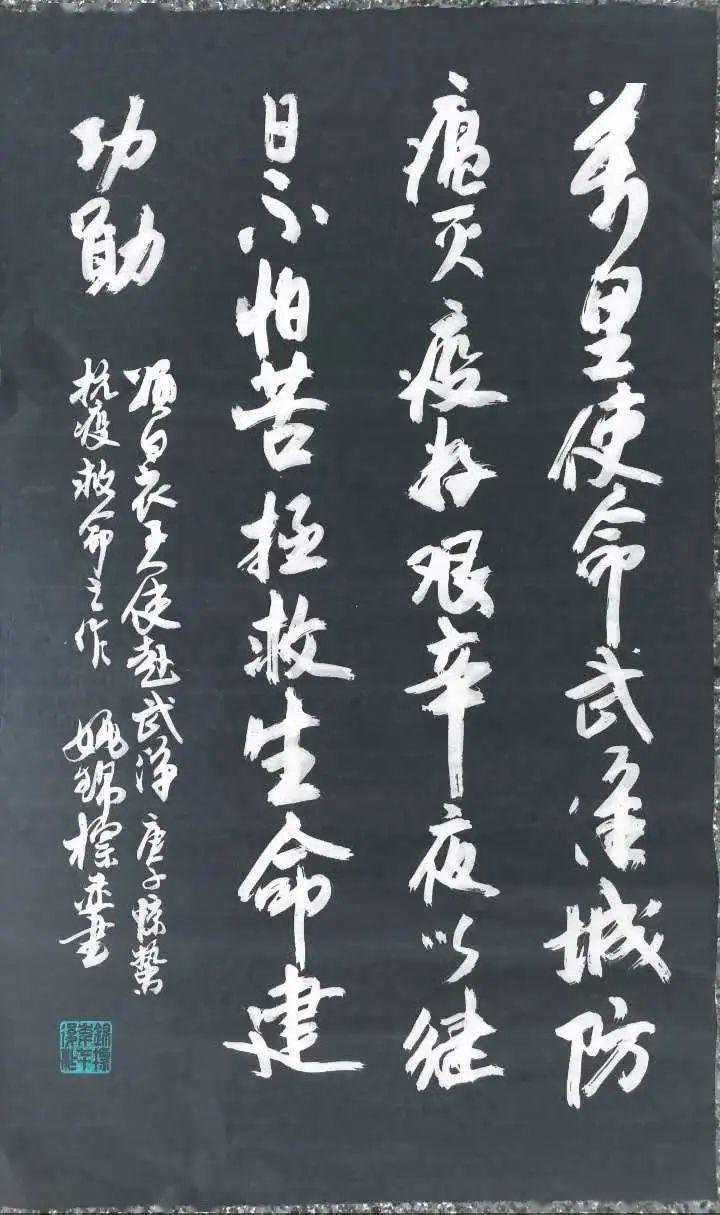 萬里使命武漢城防
瘟灭疫好艰辛夜以继
日不怕苦拯救生命建
功勋
颂白衣天使赴武漢 庚子惊蛰
抗疫救命之作 姚锦标并书